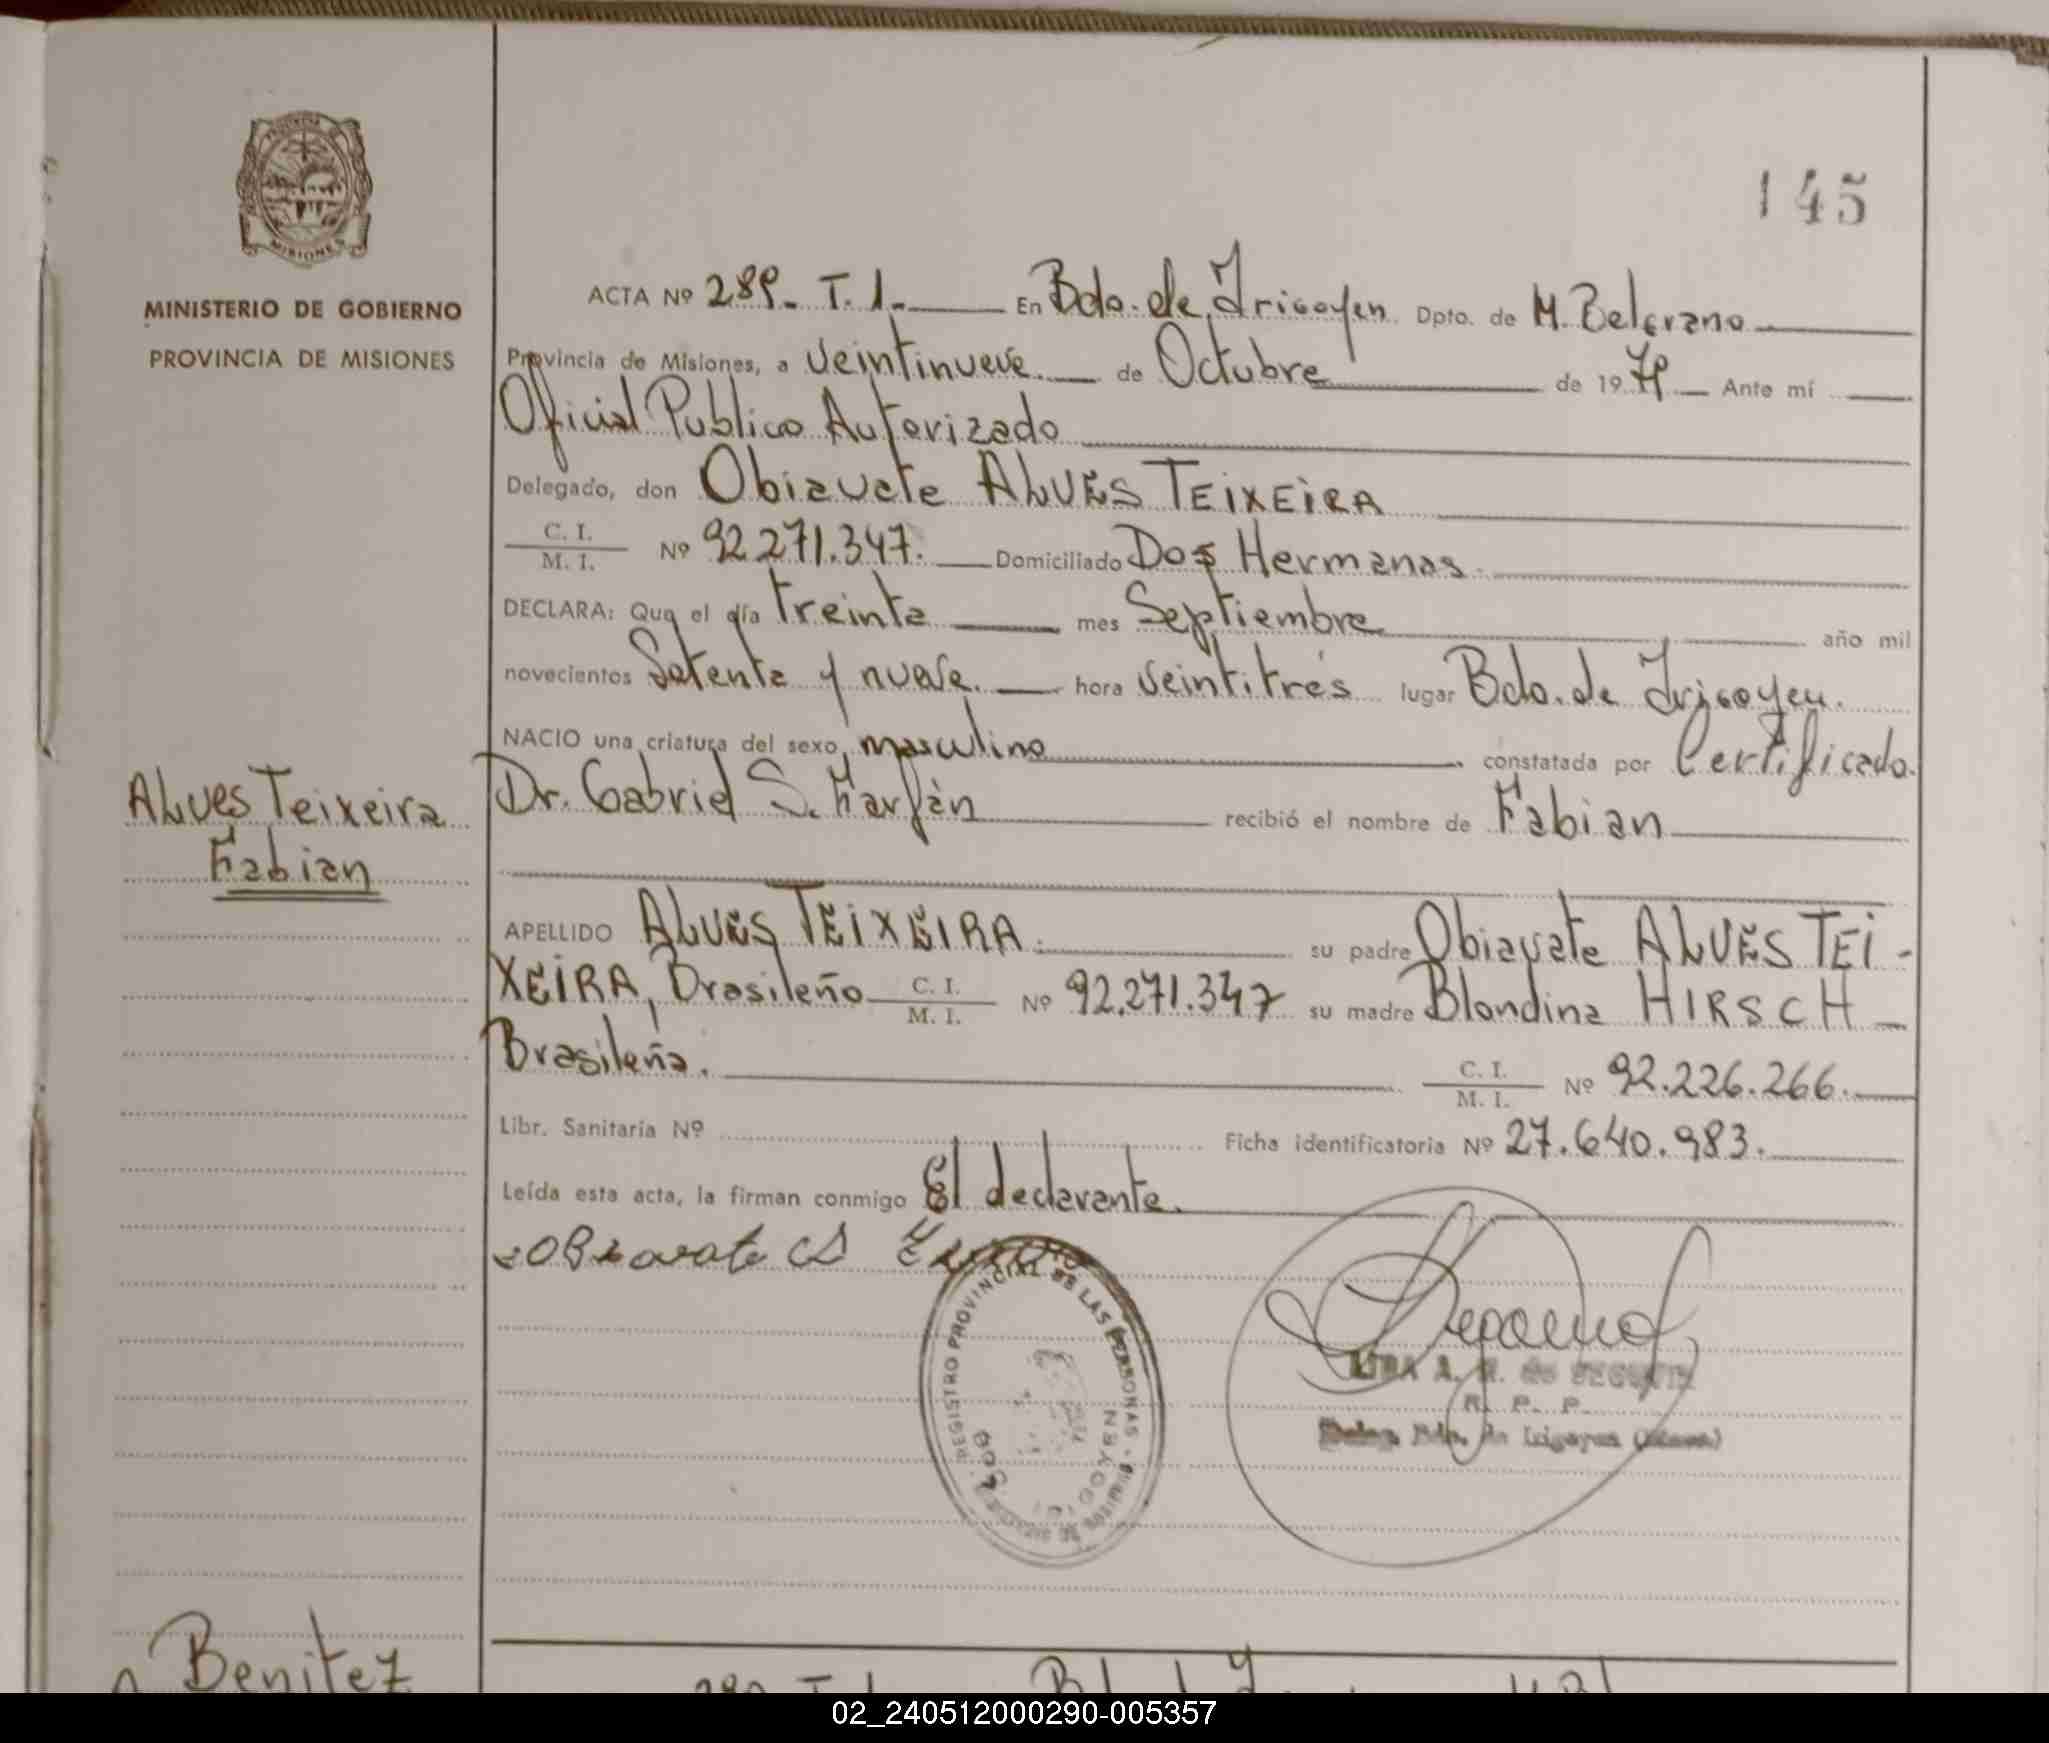 PROVINCIA DE
MISIONES
MINISTERIO DE GOBIERNO
PROVINCIA DE MISIONES
145
ACTA Nº 289. T. 1. En Bdo. de Irigoyen Dpto. de M. Belgrano
Provincia de Misiones, a Veintinueve de Octubre de 19 79 Ante mí
Oficial Publico Autorizado
Delegado, don Obiavate ALVES TEIXEIRA
C. I.
M. I. Nº 92.271.347. Domiciliado Dos Hermanas
DECLARA: Que el día treinta mes Septiembre año mil
novecientos Setenta y nueve. hora Veintitrés lugar Bdo. de Irigoyen.
NACIO una criatura del sexo masculino constatada por Certificado.
Dr. Gabriel S. Farfán recibió el nombre de Fabian
Alves Teixeira
Fabian
APELLIDO ALVES TEIXEIRA. su padre Obiavate ALVES TEI-
XEIRA, Brasileño C. I. M. I. Nº 92.271.347 su madre Blondina HIRSCH
Brasileña. C. I. M. I. Nº 92.226.266.
Libr. Sanitaria Nº Ficha identificatoria Nº 27.640.983.
Leída esta acta, la firman conmigo El declarante.
REGISTRO PROVINCIAL DE LAS PERSONAS
R. P. P.
Deleg. Bdo. de Irigoyen
Benitez
02_240512000290-005357